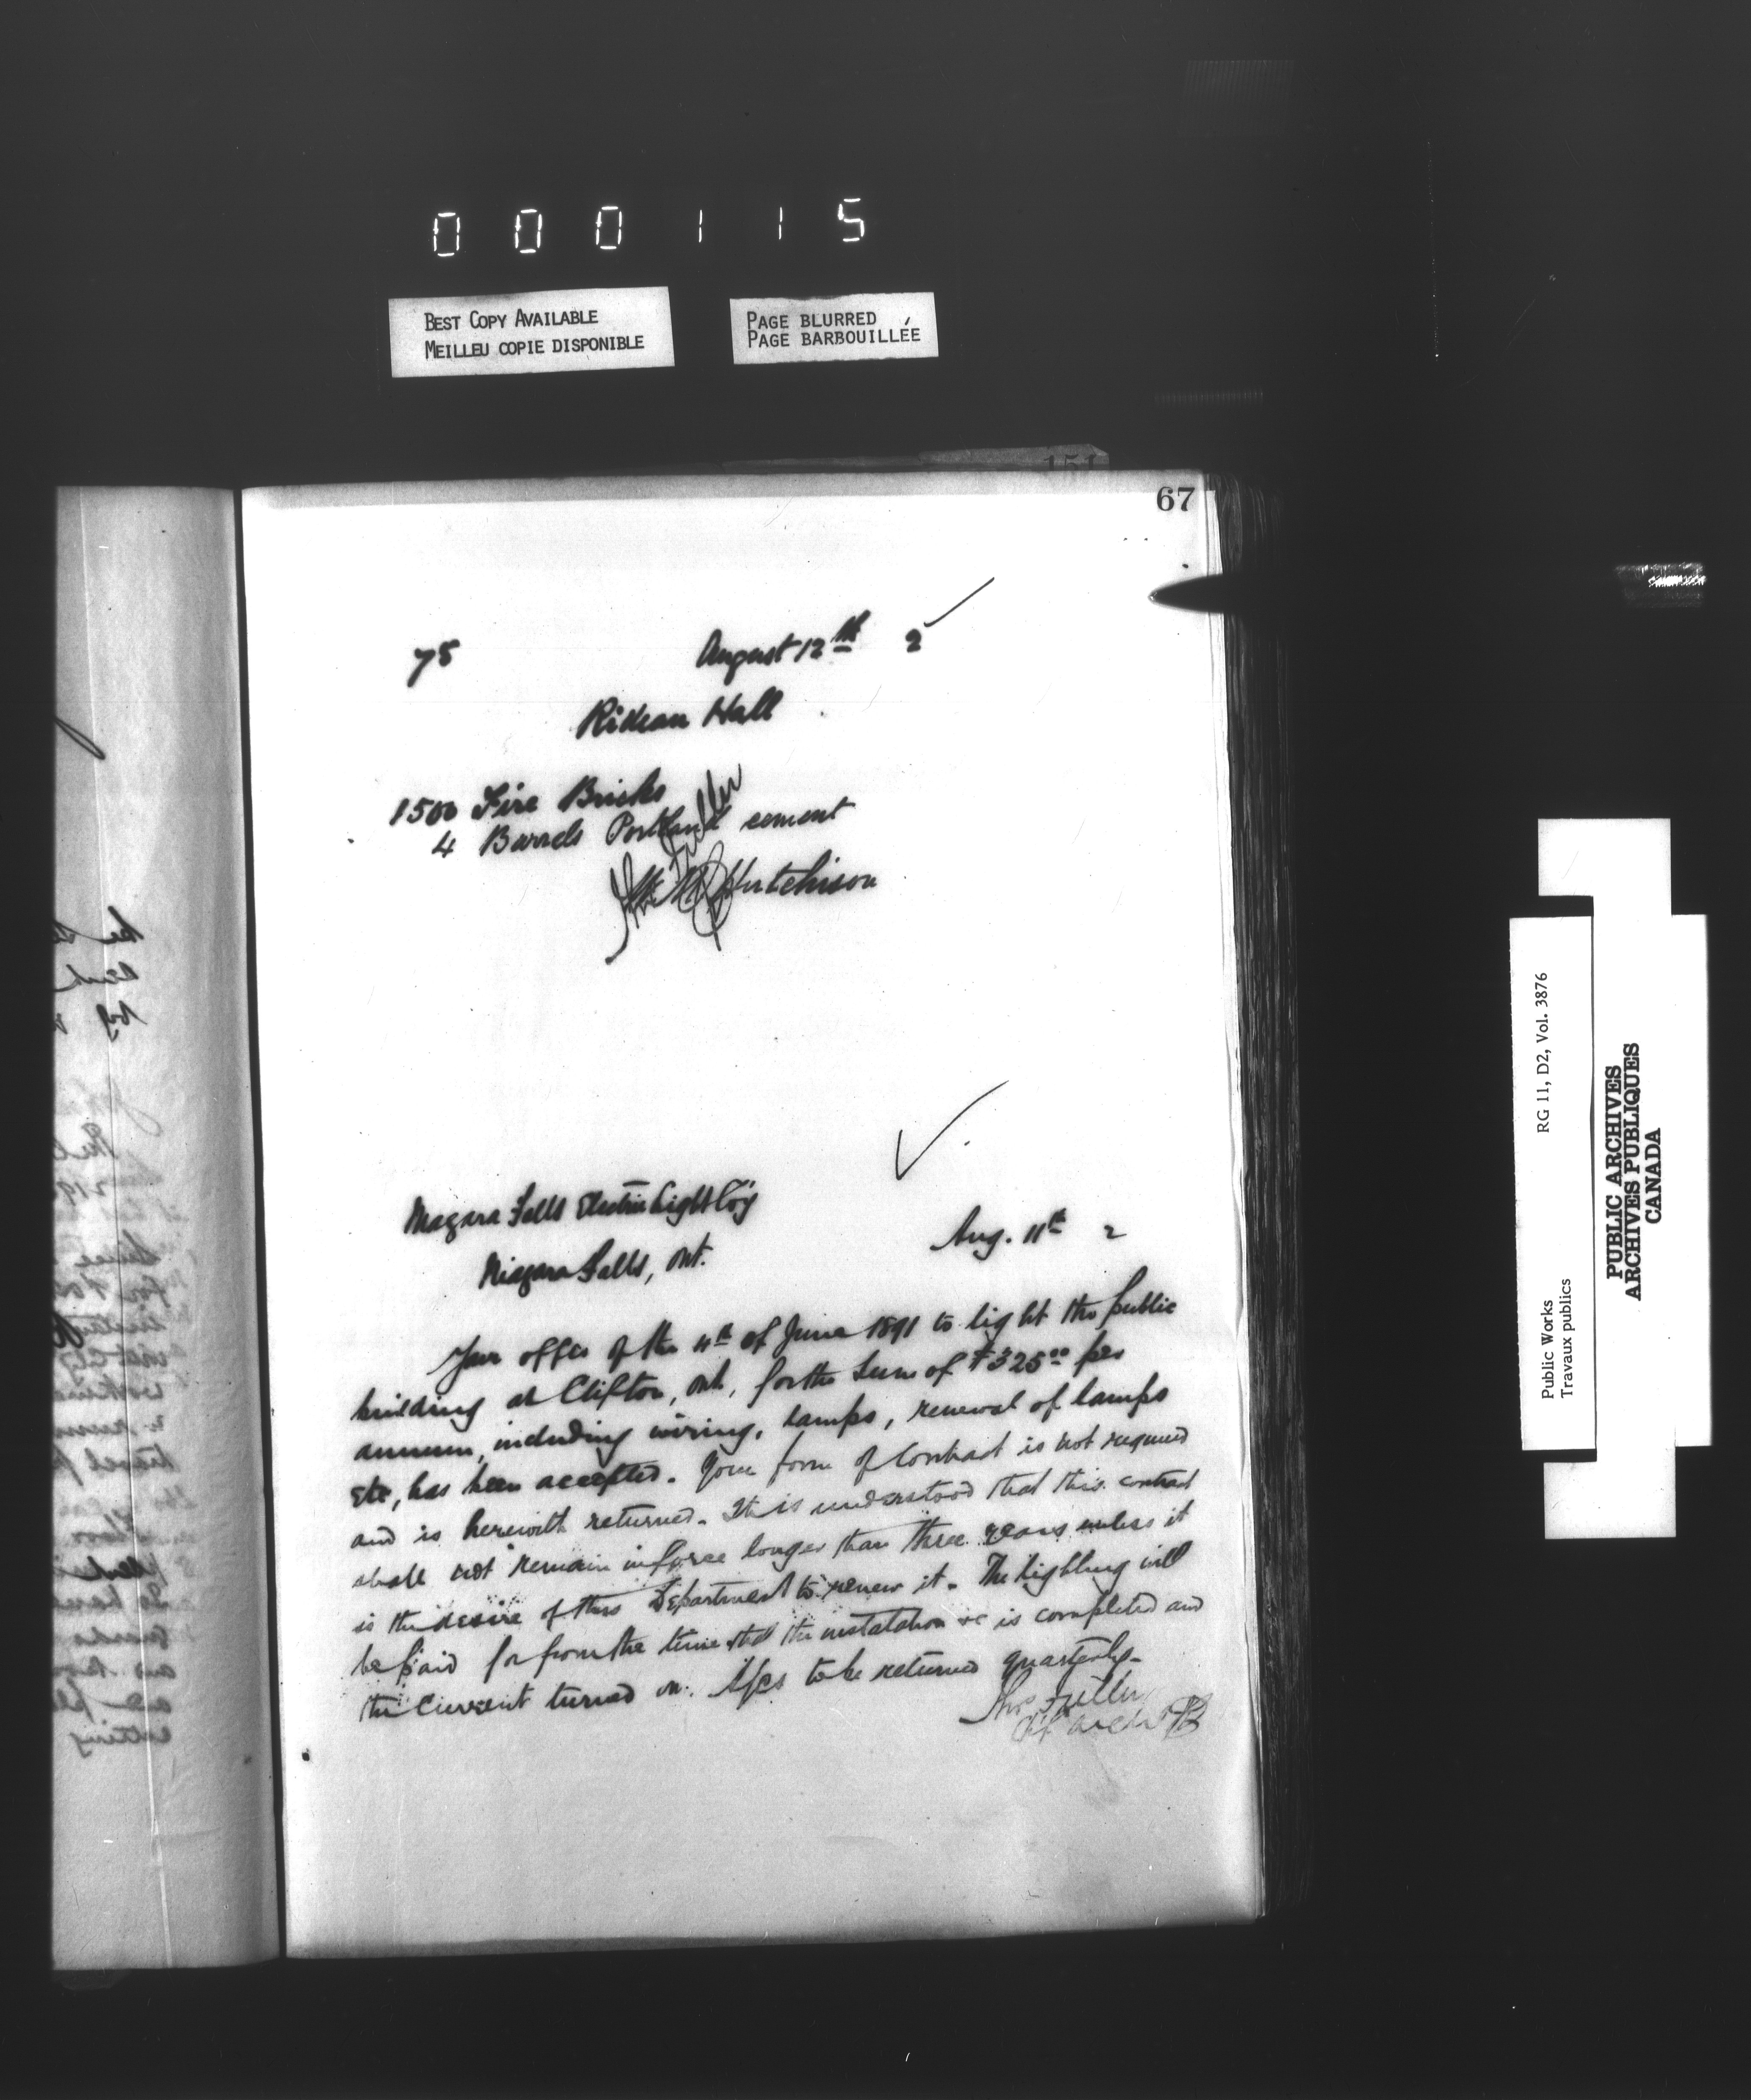 000115
BEST COPY AVAILABLE
MEILLEU COPIE DISPONIBLE
PAGE BLURRED
PAGE BARBOUILLÉE
151
67
75 August 12th 2
Rideau Hall
1500 Fire Bricks
4 Barrels Portland cement
Fuller
Hutchison
Niagara Falls Electric Light Coy
Niagara Falls, Ont.
Aug. 11th 2
Your offer of the 4th of June 1891 to light the public
building at Clifton, Ont, for the sum of $325.00 per
annum, including wiring, lamps, renewal of lamps
etc, has been accepted. Your form of Contract is not required
and is herewith returned. It is understood that this contract
shall not remain in force longer than three years unless it
is the desire of this Department to renew it. The lighting will
be paid for from the time that the installation &c is completed and
the Current turned on. A/cs to be returned quarterly.
Fuller
RG 11, D2, Vol. 3876
Public Works
Travaux publics
PUBLIC ARCHIVES
ARCHIVES PUBLIQUES
CANADA